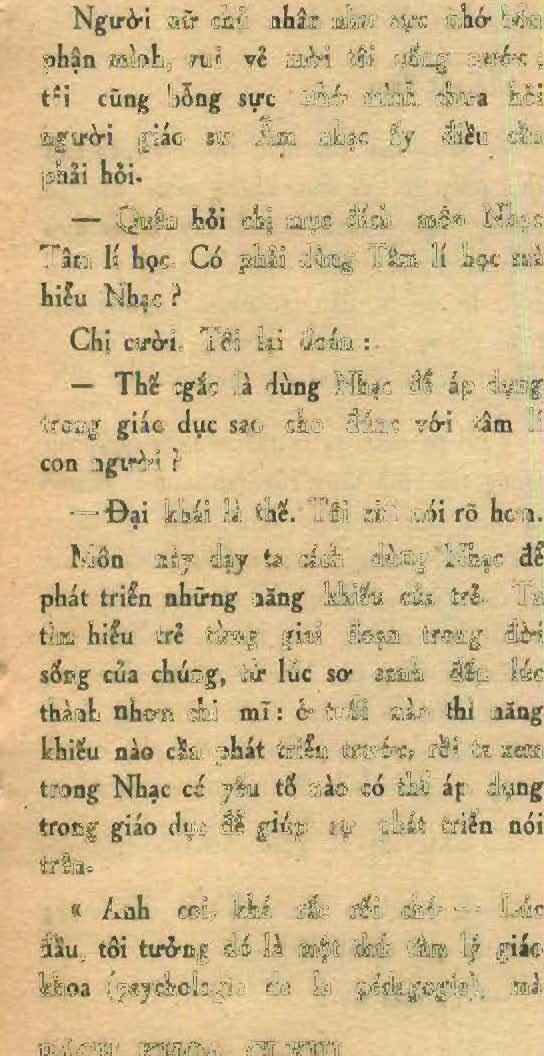 Người nữ chủ nhân như sực nhớ bổn
phận mình, vui vẻ mời tôi uống nước ;
tôi cũng bỗng sực nhớ mình chưa hỏi
người giáo sư Âm nhạc ấy điều cần
phải hỏi.
— Quên hỏi chị mục đích môn Nhạc
Tâm lí học. Có phải dùng Tâm lí học mà
hiểu Nhạc ?
Chị cười. Tôi lại đoán :
— Thế là dùng Nhạc để áp dụng
trong giáo dục sao cho đúng với tâm lí
con người ?
— Đại khái là thế. Tôi xin nói rõ hơn.
Môn này dạy ta cách dùng Nhạc để
phát triển những năng khiếu của trẻ. Ta
tìm hiểu trẻ từng giai đoạn trong đời
sống của chúng, từ lúc sơ sanh đến lúc
thành nhơn chi mĩ : ở tuổi nào thì năng
khiếu nào cần phát triển trước, rồi ta xem
trong Nhạc có yếu tố nào có thể áp dụng
trong giáo dục để giúp sự phát triển nói
trên.
« Anh coi, khá rắc rối chớ — Lúc
đầu, tôi tưởng đó là một thứ tâm lý giáo
khoa (psychologie de la pédagogie), mà
BÁCH KHOA